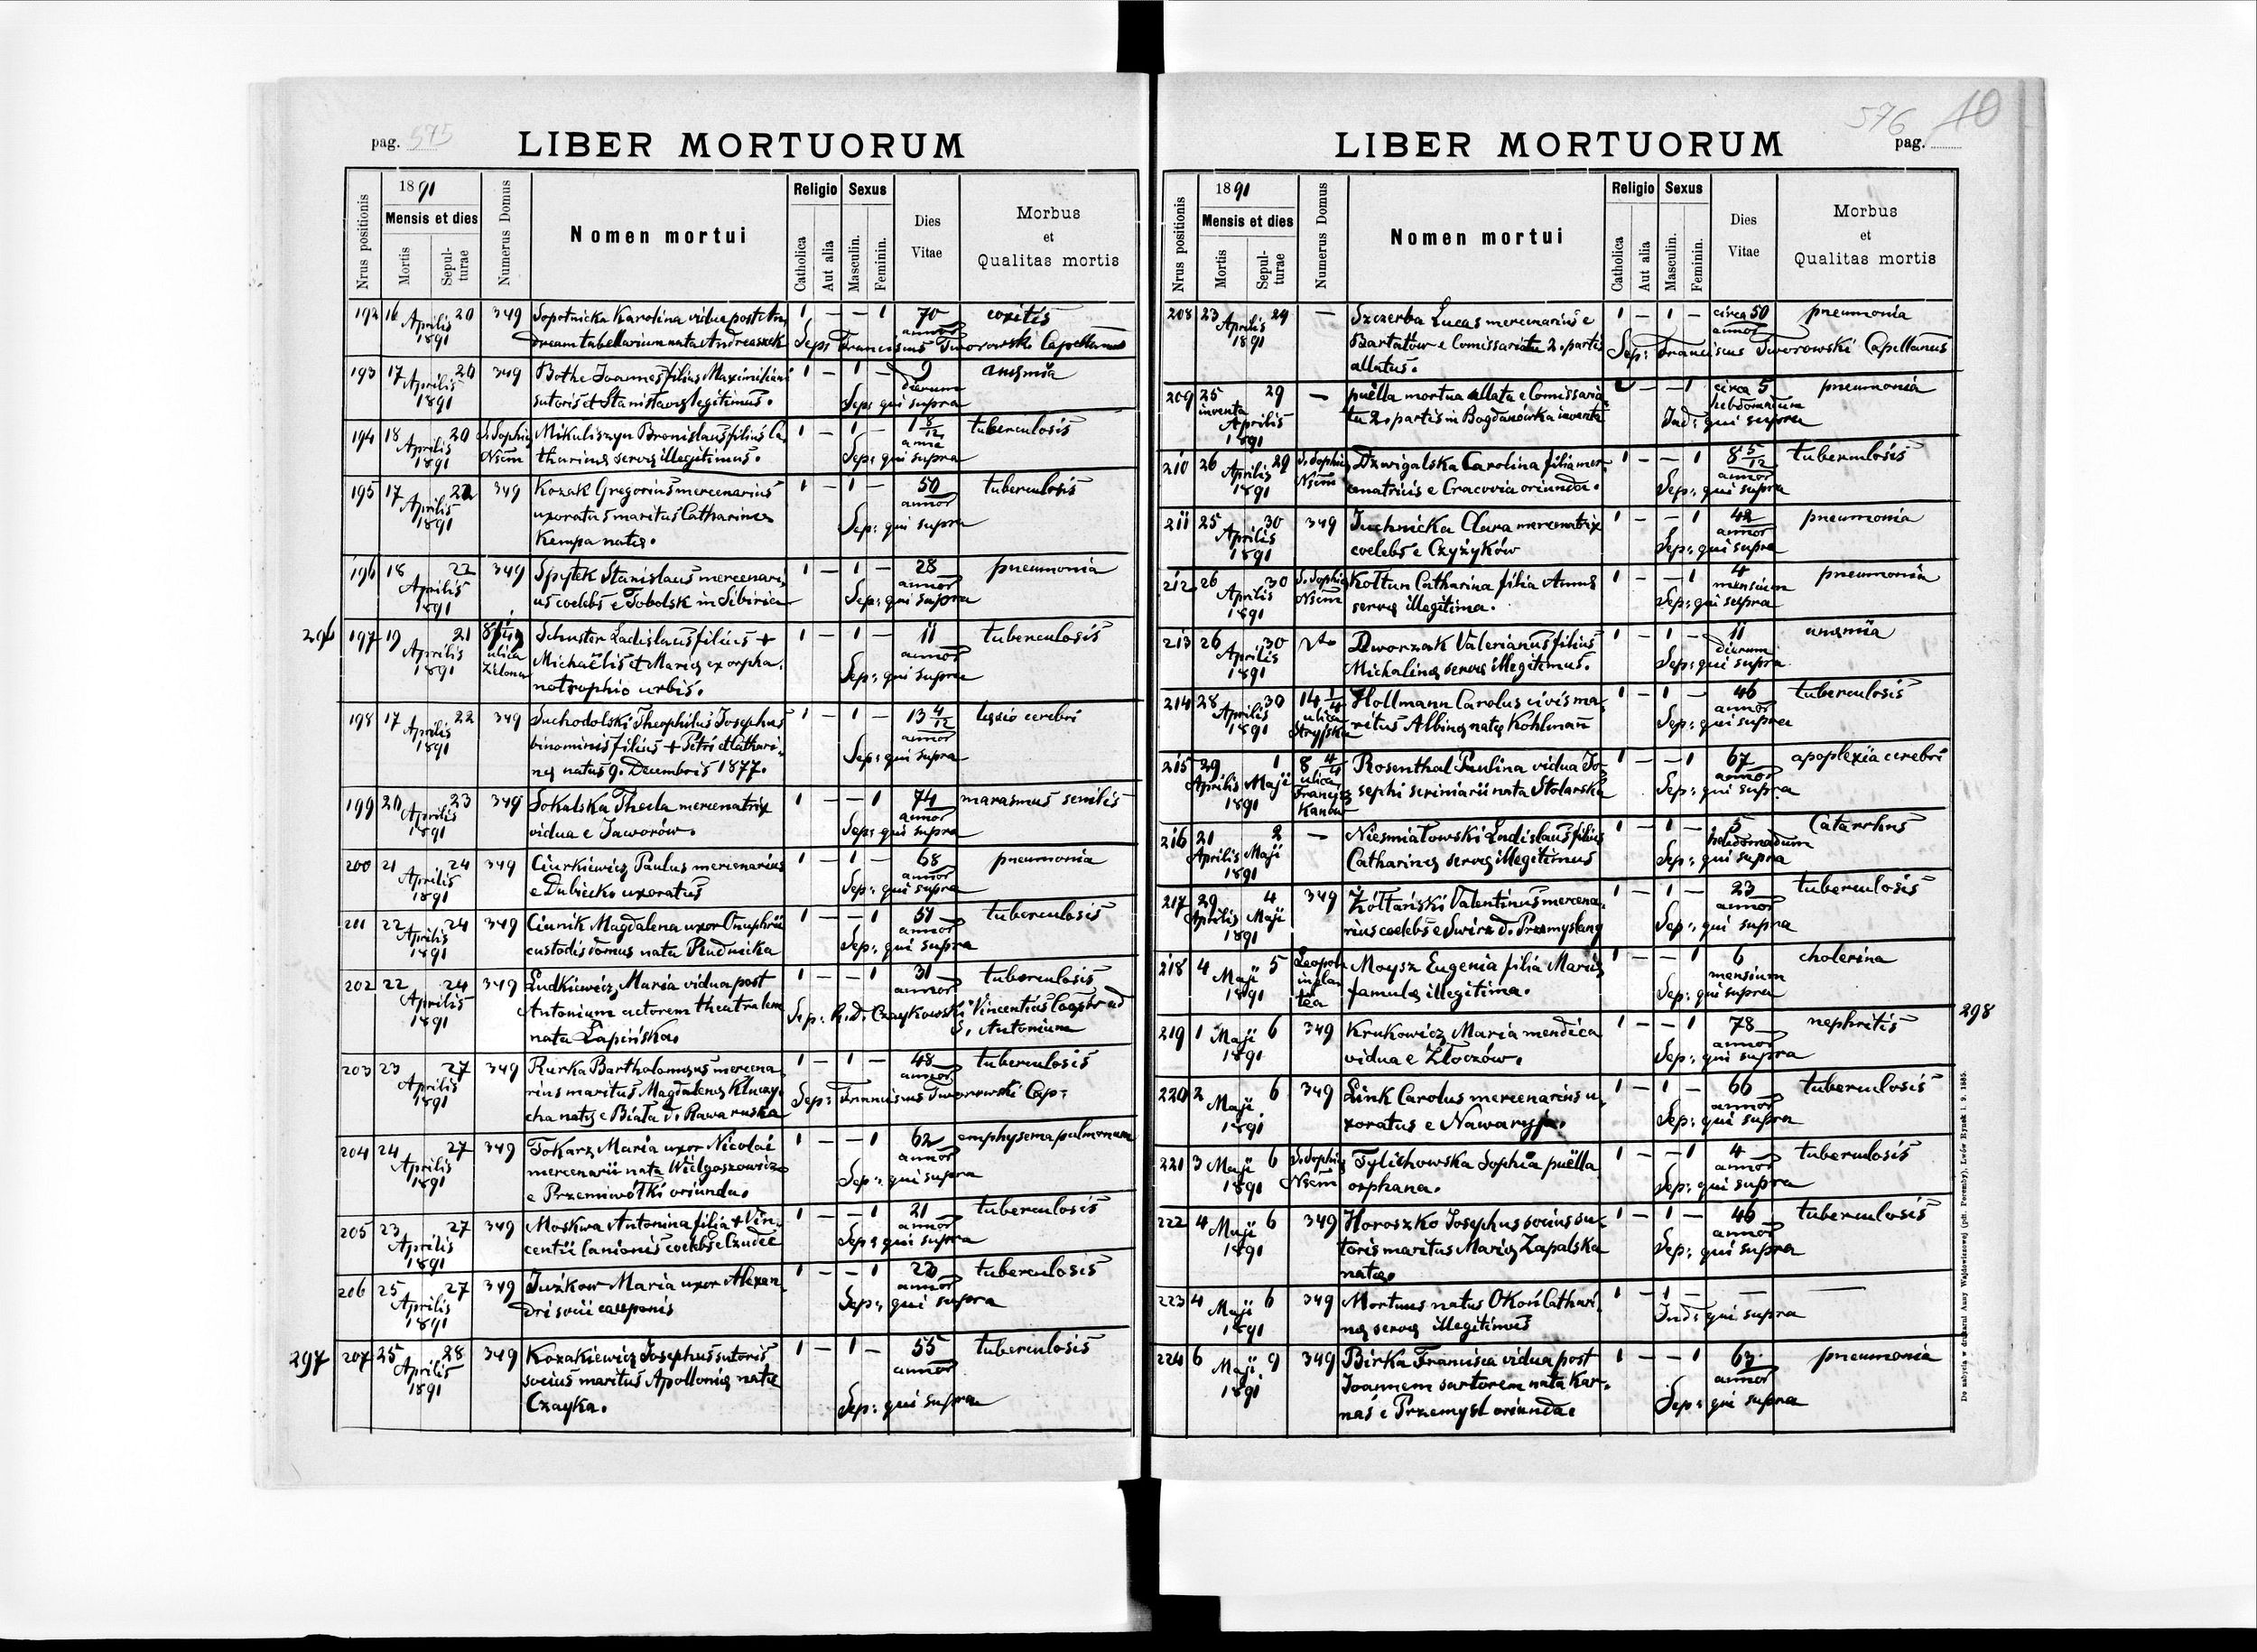 pag. 575
LIBER MORTUORUM
Nrus positionis
1891
Mensis et dies
Mortis
Sepulturae
Numerus Domus
Nomen mortui
Religio
Catholica
Aut alia
Sexus
Masculin.
Feminin.
Dies
Vitae
Morbus
et
Qualitas mortis
192 16 20 349 Sopotnicka Karolina vidua post An, 1 — — 1 70 coxitis
Aprilis dream tabellarium nata Andreaszek annor
1891 Sep: Franciscus Tworowski Capellanus
193 17 20 349 Bothe Joannes filius Maximiliani 1 — 1 — 9 anęmia
Aprilis sutoris et Stanislavę legitimus. dierum
1891 Sep: qui supra
194 18 20 S. Sophię Mikuliszyn Bronislaus filius Ca 1 — 1 — 1 8/12 tuberculosis
Aprilis Nrum tharinę servę illegitimus. anni
1891 Sep: qui supra
195 17 22 349 Kozak Gregorius mercenarius 1 — 1 — 50 tuberculosis
Aprilis uxoratus maritus Catharinę annor
1891 Kempa natę. Sep: qui supra
196 18 22 349 Spytek Stanislaus mercenari, 1 — 1 — 28 pneumonia
Aprilis us coelebs e Tobolsk in Sibiria annor
1891 Sep: qui supra
296 197 19 21 ulica Zielona Schuster Ladislaus filius + 1 — 1 — 11 tuberculosis
Aprilis Michaëlis et Marię ex orpha, annor
1891 notrophio urbis. Sep: qui supra
198 17 22 349 Suchodolski Theophilus Josephus 1 — 1 — 13 4/12 lęsio cerebri
Aprilis binominis filius + Petri et Cathari, annor
1891 nę natus 9. Decembris 1877. Sep: qui supra
199 20 23 349 Sokalska Thecla mercenatrix 1 — — 1 74 marasmus senilis
Aprilis vidua e Jaworów. annor
1891 Sep: qui supra
200 21 24 349 Ciurkiewicz Paulus mercenarius 1 — 1 — 68 pneumonia
Aprilis e Dubiecko uxoratus annor
1891 Sep: qui supra
201 22 24 349 Ciunik Magdalena uxor Onuphrii 1 — — 1 51 tuberculosis
Aprilis custodis domus nata Rudnicka annor
1891 Sep: qui supra
202 22 24 349 Ludkiewicz Maria vidua post 1 — — 1 31 tuberculosis
Aprilis Antonium actorem theatralem annor
1891 nata Łapińska. Sep: R. D. Czaykowski Vincentius Coopr ad S. Antonium
203 23 27 349 Rurka Bartholomęus mercena 1 — 1 — 48 tuberculosis
Aprilis rius maritus Magdalenę Kluczy, annor
1891 cha natę e Biała d. Rawa ruska Sep: Franciscus Tworowski Cap:
204 24 27 349 Tokarz Maria uxor Nicolai 1 — — 1 62 emphysema pulmonum
Aprilis mercenarii nata Wielgoszowicz annor
1891 e Przemiwółki oriunda. Sep: qui supra
205 23 27 349 Moskwa Antonina filia + Vin, 1 — — 1 21 tuberculosis
Aprilis centii lanionis coelebs e Czudec annor
1891 Sep: qui supra
206 25 27 349 Juzkow Maria uxor Alexan 1 — — 1 tuberculosis
Aprilis dri socii cauponis annor
1891 Sep: qui supra
297 207 25 28 349 Kozakiewicz Josephus sutoris 1 — 1 — 55 tuberculosis
Aprilis socius maritus Apollonię natę annor
1891 Czayka. Sep: qui supra
576 pag. 10
LIBER MORTUORUM
Nrus positionis
1891
Mensis et dies
Mortis
Sepulturae
Numerus Domus
Nomen mortui
Religio
Catholica
Aut alia
Sexus
Masculin.
Feminin.
Dies
Vitae
Morbus
et
Qualitas mortis
208 23 29 — Szczerba Lucas mercenarius e 1 — 1 — circa 50 pneumonia
Aprilis Bartatów e Comissariatu 2. partis annor
1891 allatus. Sep: Franciscus Tworowski Capellanus
209 25 29 — puëlla mortua allata e Comissaria 1 — — 1 circa 5 pneumonia
inventa tu 2. partis in Bogdanówka inventa hebdomadum
Aprilis 1891 Ind: qui supra
210 26 29 S. Sophię Dzwigalska Carolina filia mer, 1 — — 1 8 5/12 tuberculosis
Aprilis Nrum cenatricis e Cracovia oriunda. annor
1891 Sep: qui supra
211 25 30 349 Juchnicka Clara mercenatrix 1 — — 1 42 pneumonia
Aprilis coelebs e Czyżyków annor
1891 Sep: qui supra
212 26 30 S. Sophię Kołtun Catharina filia Annę 1 — — 1 4 pneumonia
Aprilis Nrum servę illegitima. mensium
1891 Sep: qui supra
213 26 30 Dworzak Valerianus filius 1 — 1 — 11 anęmia
Aprilis Michalinę servę illegitimus. dierum
1891 Sep: qui supra
214 28 30 14 1/4 Hollmann Carolus civis ma, 1 — 1 — 46 tuberculosis
Aprilis ulica ritus Albinę natę Kohlman annor
1891 Stryjska Sep: qui supra
215 29 1 8 4/4 Rosenthal Paulina vidua Jo, 1 — — 1 67 apoplexia cerebri
Aprilis Maji ulica sephi scriniarii nata Stolarska annor
1891 Francisz kanów Sep: qui supra
216 21 2 — Niesmiałowski Ladislaus filius 1 — 1 — 5 Catarrhus
Aprilis Maji Catharinę servę illegitimus hebdomadum
1891 Sep: qui supra
217 29 4 349 Żółtański Valentinus mercena, 1 — 1 — 23 tuberculosis
Aprilis Maji rius coelebs e Swirz d. Przemyslany annor
1891 Sep: qui supra
218 4 5 Leopoli Moysz Eugenia filia Marię 1 — — 1 6 cholerina
Maji in plan famulę illegitima. mensium
1891 tea Sep: qui supra
219 1 6 349 Krukowicz Maria mendica 1 — — 1 78 nephritis 298
Maji vidua e Złoczów. annor
1891 Sep: qui supra
220 2 6 349 Link Carolus mercenarius u, 1 — 1 — 66 tuberculosis
Maji xoratus e Nawaryja. annor
1891 Sep: qui supra
221 3 6 S. Sophię Tylichowska Sophia puëlla 1 — — 1 4 tuberculosis
Maji Nrum orphana. annor
1891 Sep: qui supra
222 4 6 349 Horoszko Josephus socius su, 1 — 1 — 46 tuberculosis
Maji toris maritus Marię Zapalska annor
1891 natę. Sep: qui supra
223 4 6 349 Mortuus natus Okoń Cathari, 1 — 1 — — —
Maji nę servę illegitimus
1891 Ind: qui supra
224 6 9 349 Birka Francisca vidua post 1 — — 1 63 pneumonia
Maji Joannem sartorem nata Kar, annor
1891 naś e Przemysl oriunda Sep: qui supra
Do nabycia w drukarni Anny Wajdowiczowej (pdt. Poremby), Lwów Rynek l. 9. 1885.